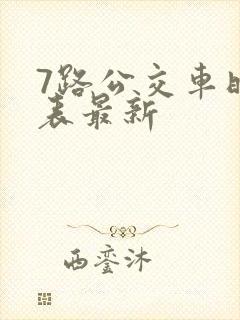 7路公交车
表最新
西銮沐